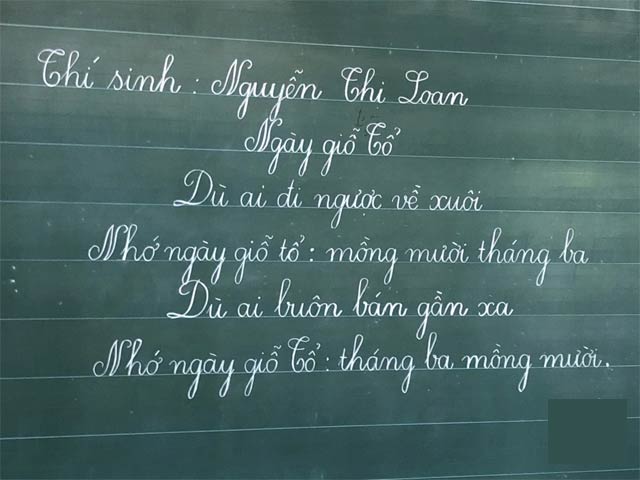 Thí sinh : Nguyễn Thị Loan
Ngày giỗ Tổ
Dù ai đi ngược về xuôi
Nhớ ngày giỗ tổ : mồng mười tháng ba
Dù ai buôn bán gần xa
Nhớ ngày giỗ Tổ : tháng ba mồng mười.